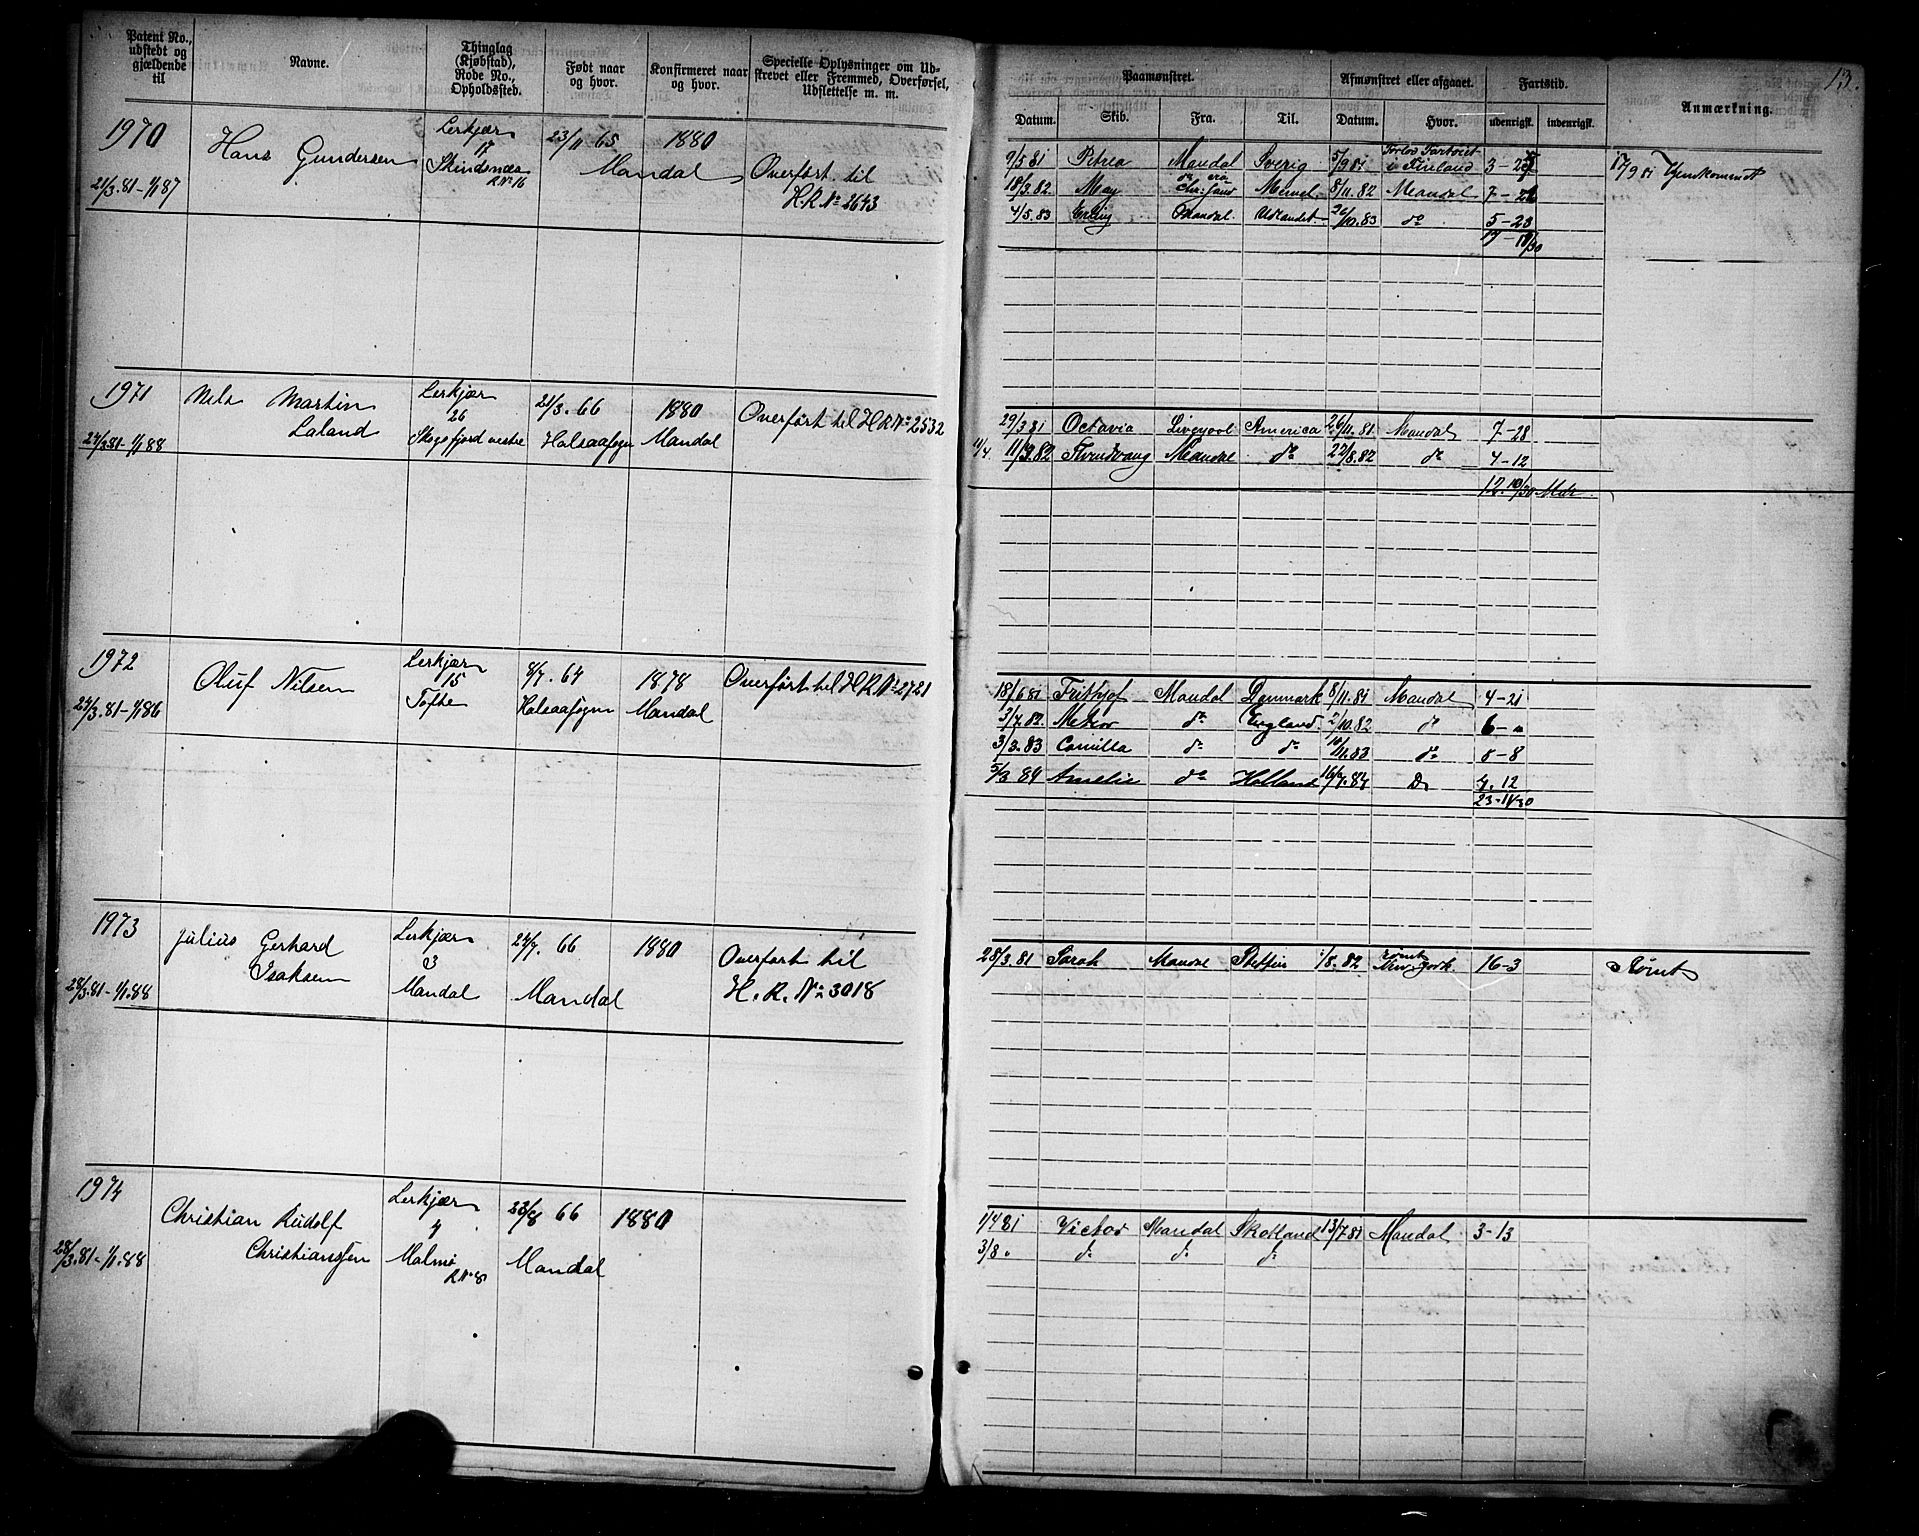 Patent No., udstedt og gjældende til
Navne.
Thinglag (Kjøbstad), Rode No., Opholdssteb.
Født naar og hvor.
Konfirmeret naar og hvor.
Specielle Oplysninger om Udskrevet eller Fremmed, Overførsel, Udslettelse m. m.
Paamønstret.
Afmønstret eller afgaaet.
Fartstid.
Anmærkning.
13.
Datum.
Skib.
Fra.
Til.
Datum.
Hvor.
udenrigsk.
indenrigsk.
1970
21/3.81-1/1 87
Hans Gundersen
Lerkjær
17
Skindsnæs
R.No 16
23/11 65
1880
Mandal
Overført til
H.R.No 2643
9/5 81 Petrea Mandal Sverig 5/9 81 Forlod Fartøiet i Finland
17/9 81 Hjemkommet
18/3.82 May do fra Chr.sand Memel 8/11.82 Mandal
4/5.83 Erling Mandal. Udlandet 26/10.83 do 5-23
17-11/30
1971
24/3.81-1/1 88
Nils Martin
Laland
Lerkjær
26
Skogsfjord vestre
21/3.66
Halsaasogn
1880
Mandal
Overført til H R No 2532
29/3 81 Octavia Liverpool America 26/11.81 Mandal 7-28
11/4. 11/3.82 Mandal do 22/8.82 do 4-12
12.10/30 Mdr
1972
24/3.81-1/1 86
Oluf Nilsen
Lerkjær
15
Tofte
8/7.64
Halsaasogn
1878
Mandal
Overført til H R No 2721
18/6 81 Frithjof Mandal Danmark 8/11.81 Mandal 4-21
3/4.82. Meteor do England 2/10.82 do 6-"
3/3.83 Camilla do do 10/11.83 do 8-8
5/3 84 Amelie do Holland 16/7.84 Do 4.12
23-11/30
1973
28/3.81-1/1.88
Julius Gerhard
Isaksen
Lerkjær
3
Mandal
24/7. 66
Mandal
1880
Overført til
H. R. No 3018
28/3.81 Sarah Mandal Stettin 1/8.82 rømt New York 16-3 Rømt
1974
28/3.81-1/1.88
Christian Rudolf
Christianssen
Lerkjær
4
Malmø
R.No 8
23/8 66
Mandal
1880
1/4 81 Victor Mandal Skotland 13/7 81 Mandal 3-13
3/8 " do do do